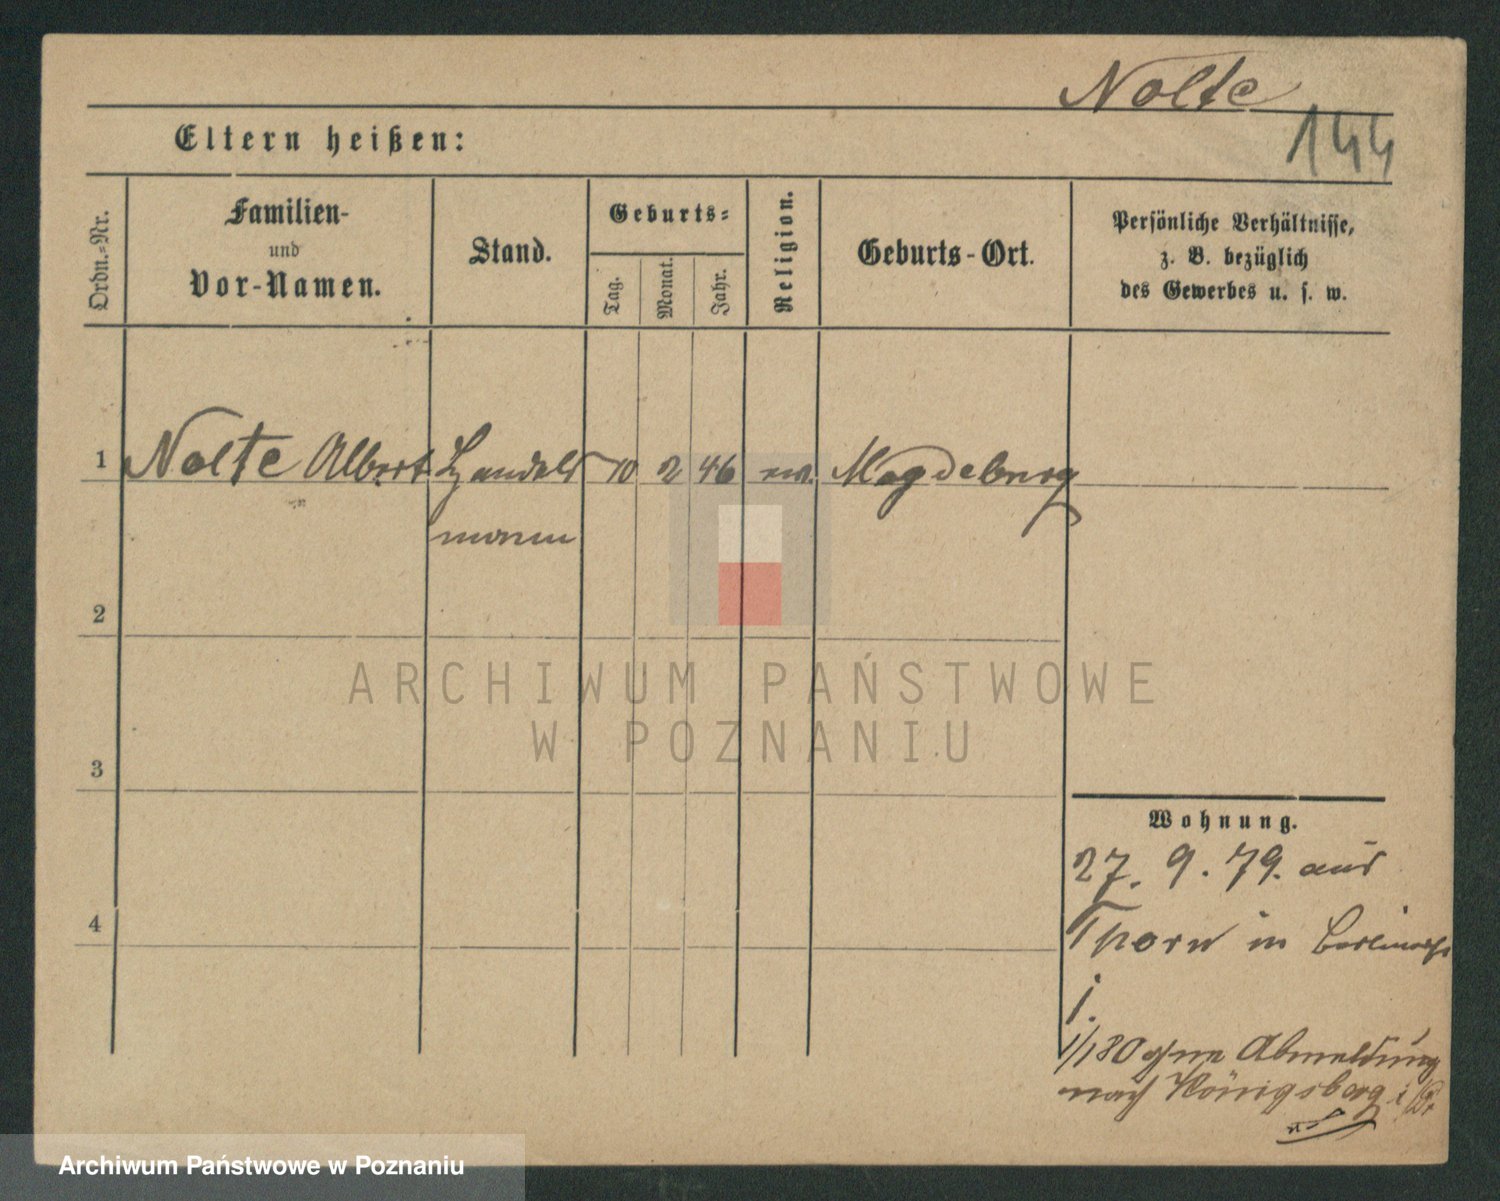 Nolte
144
Eltern heißen:
Ordn.-Nr.
Familien-
und
Vor-Namen.
Stand.
Geburts-
Tag.
Monat.
Jahr.
Religion.
Geburts-Ort.
Persönliche Verhältnisse,
z. B. bezüglich
des Gewerbes u. s. w.
1 Nolte Albert Handels 10 2 46 ev. Magdeburg
mann
2
ARCHIWUM PAŃSTWOWE
W POZNANIU
3
Wohnung.
27. 9. 79. aus
4
Thorn in
1.
1/1 80 ohne Abmeldung
nach Königsberg i/Pr
Archiwum Państwowe w Poznaniu